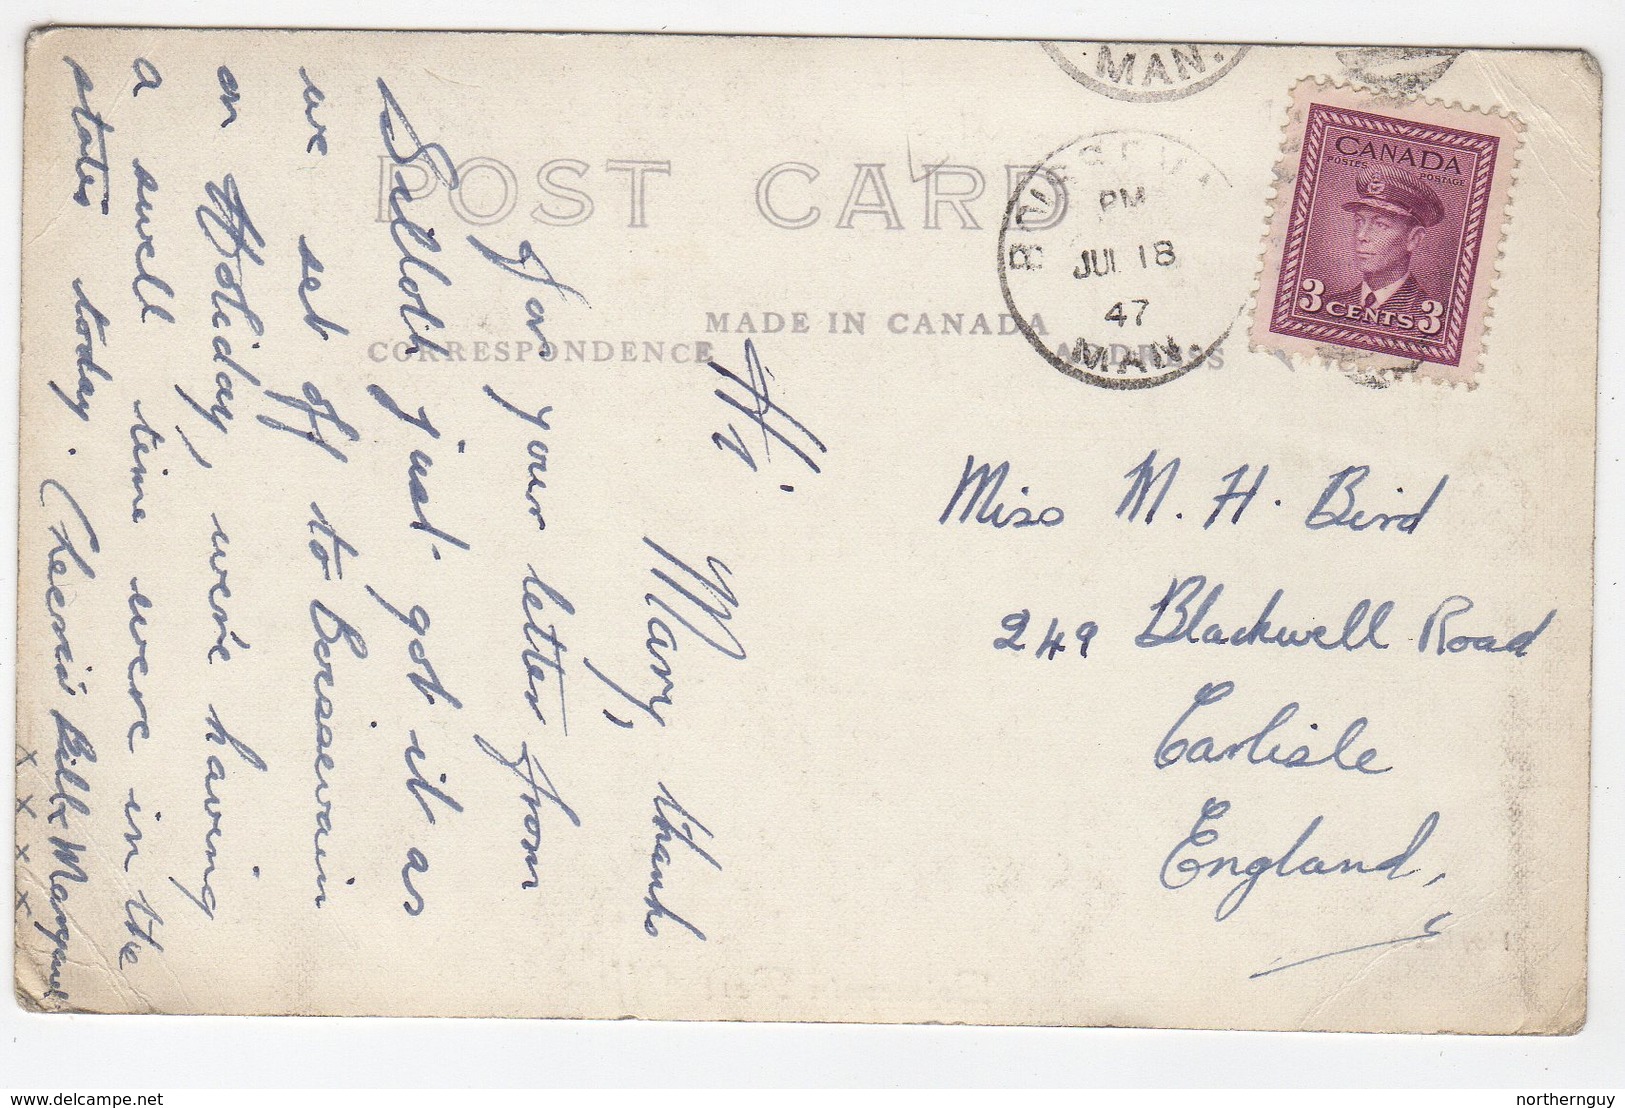 MAN.
POST CARD
BOISSEVAIN
PM
JUL 18
47
MAN.
CANADA
POSTES POSTAGE
3 CENTS 3
MADE IN CANADA
CORRESPONDENCE
ADDRESS
Hi.
Mary, thanks
for your letter from
Silloth just got it as
we set off to Boissevain
on Holiday, we're having
a swell time were in the
states today. Cheerio Bill & Margaret
x x x x x
Miss M. H. Bird
249 Blackwell Road
Carlisle
England,
delcampe.net
northernguy